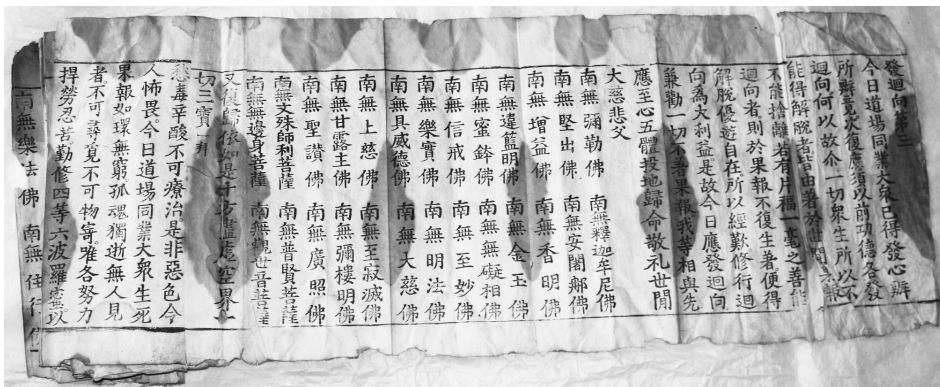 發迴向第三
今日道場同業大衆已得發心辦
所辦竟次復應須以前功德各發
迴向何以故介一切衆生所以不
能得解脫者皆由著於世間果報
不能捨離若有片福一毫之善能
迴向者則於果報不復生著便得
解脫優遊自在所以經歎修行迴
向為大利益是故今日應發迴向
兼勸一切不著果報我等相與先
應至心五體投地歸命敬礼世間
大慈悲父
南無彌勒佛 南無釋迦牟尼佛
南無堅出佛 南無安闍那佛
南無增益佛 南無香明佛
南無違籃明佛 南無金玉佛
南無蜜鉢佛 南無無礙相佛
南無信戒佛 南無至妙佛
南無樂實佛 南無明法佛
南無具威德佛 南無大慈佛
南無上慈佛 南無至寂滅佛
南無甘露主佛 南無彌樓明佛
南無聖讚佛 南無廣照佛
南無文殊師利菩薩 南無普賢菩薩
南無無邊身菩薩 南無觀世音菩薩
又復歸依如是十方盡虛空界一
切三寶一拜
毒辛酸不可療治是非惡色令
人怖畏今日道場同業大衆生死
果報如環無窮孤魂獨逝無人見
者不可尋覓不可物寄唯各努力
捍勞忍苦勤修四等六波羅蜜以
南無樂法佛 南無住行佛